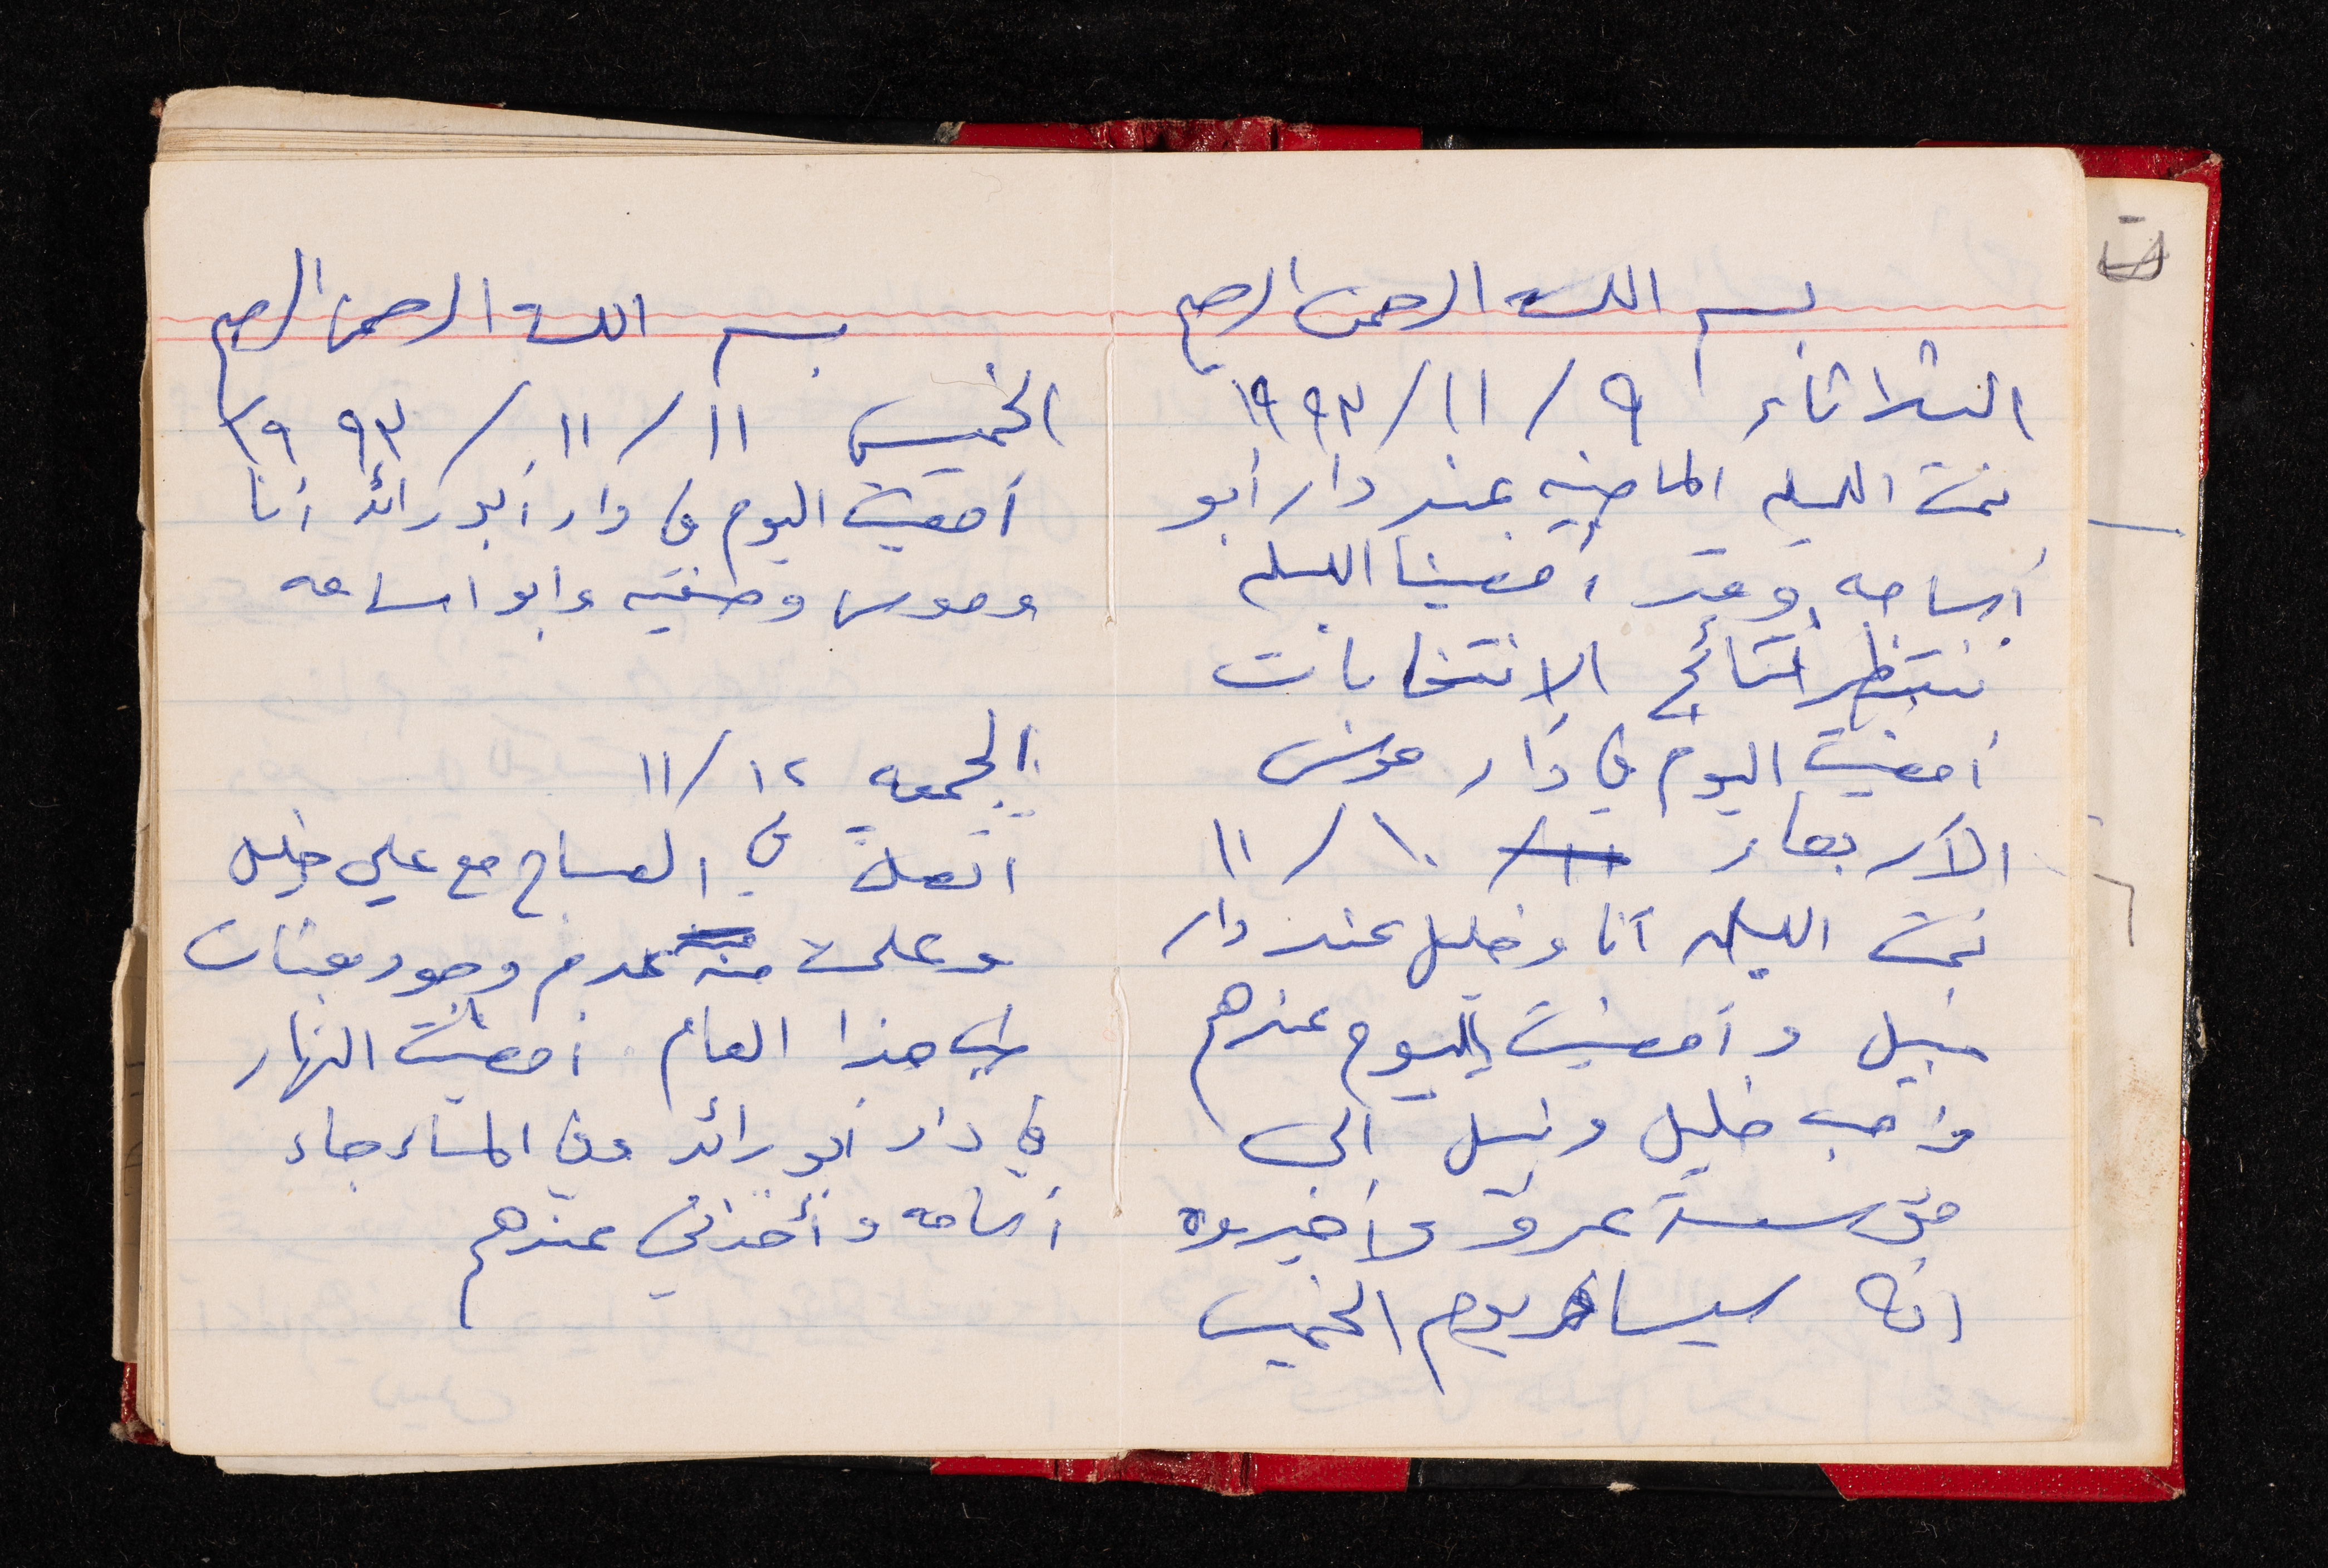 بسم الله الرحمن الرحيم
الثلاثاء ٩/١١/١٩٩٣
نمت الليله الماضيه عند دار أبو
أسامه وقد أمضينا الليله
ننتظر نتائج الانتخابات
أمضيت اليوم في دار موسى
الأربعاء ١٠/١١
نمت الليله أنا وخليل عند دار
نبيل وأمضيت اليوم عندهم
وذهب خليل ونبيل الى
عمرو وأخبروه
انه سيسافر يوم الخميس
بسم الله الرحمن الرحيم
الخميس ١١/١١/١٩٩٣
أمضيت اليوم في دار أبو رائد أنا
وموسى وصفيه وابو اسامه
الجمعه ١٢/١١
اتصلت في الصباح مع علي خليل
وعلمت منه عدم وجود بعثات
هذا العام أمضيت النهار
في دار ابو رائد وفي المساء جاء
أسامه وأخذني عندهم